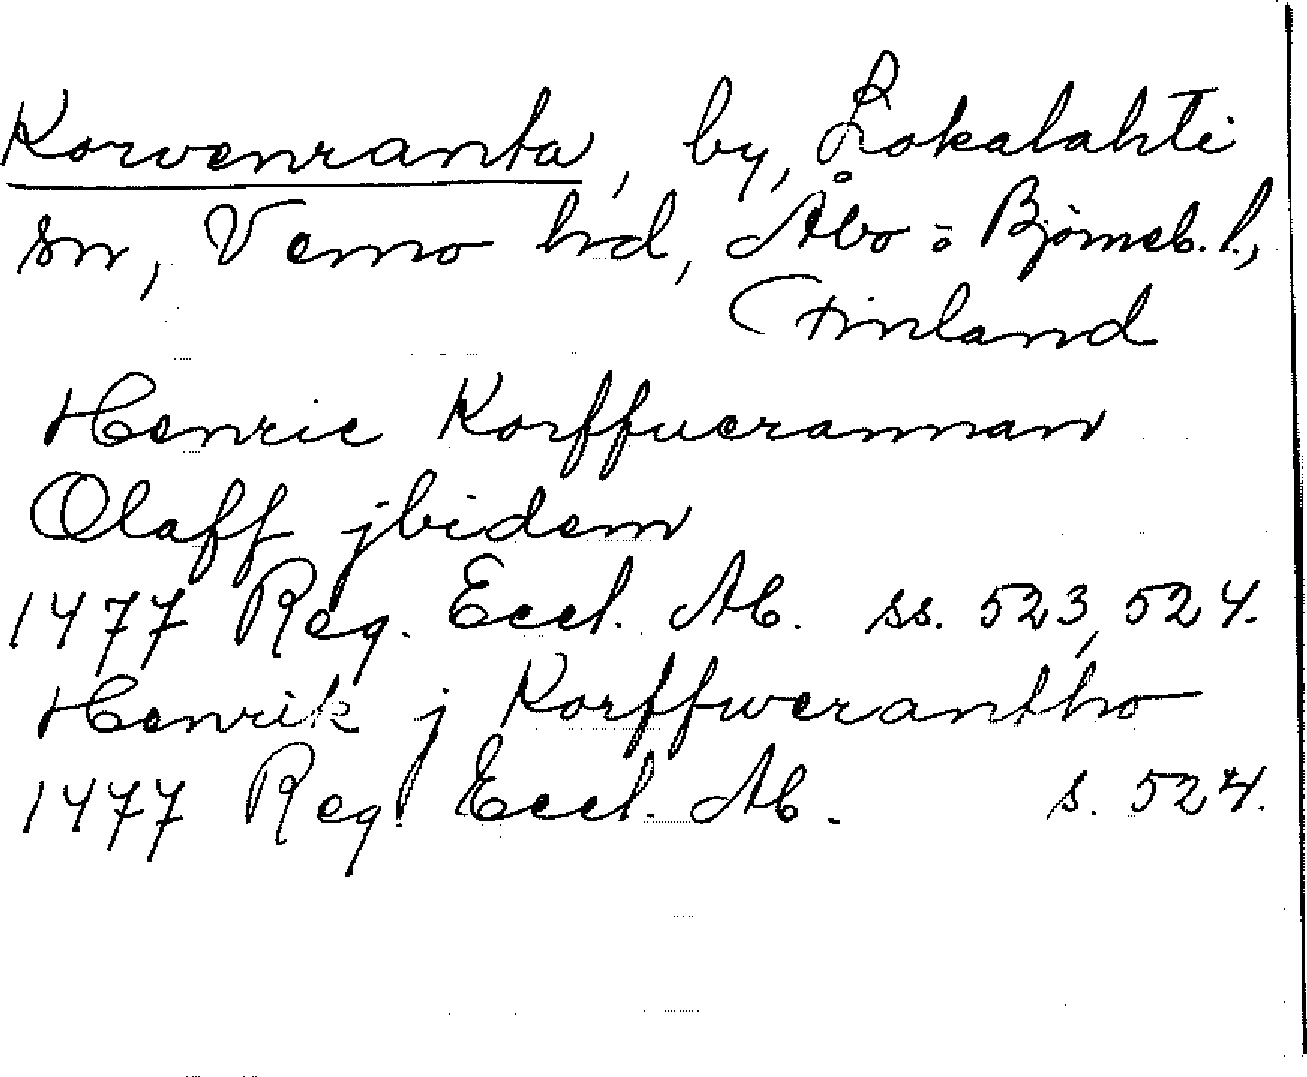 Korvenranta, by, Lokalahti
sn, Vemo hd, Åbo o Björneb. l.,
Finland
Henric Korffuerannan
Olaff jbidem
1477 Reg. Eccl. Ab. ss. 523, 524.
Henrik j Korffwerantho
1477 Reg. Eccl. Ab. s. 524.